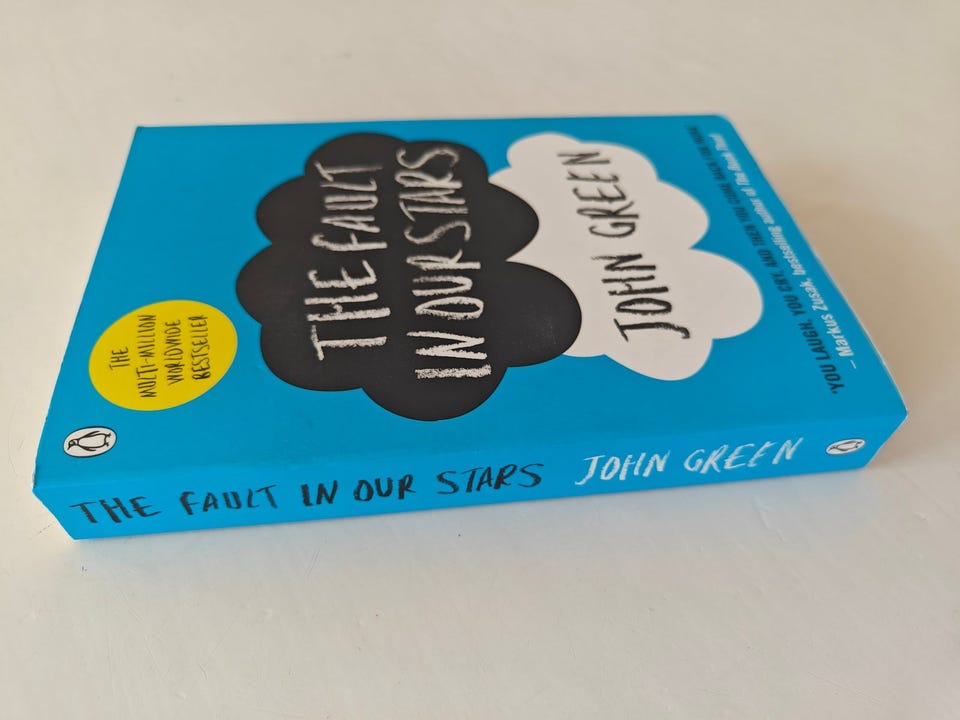 THE FAULT
IN OUR STARS
JOHN GREEN
'YOU LAUGH, YOU CRY, AND THEN YOU COME BACK FOR MORE'
– Markus Zusak, bestselling author of The Book Thief
THE
MULTI-MILLION
WORLDWIDE
BESTSELLER
THE FAULT IN OUR STARS JOHN GREEN